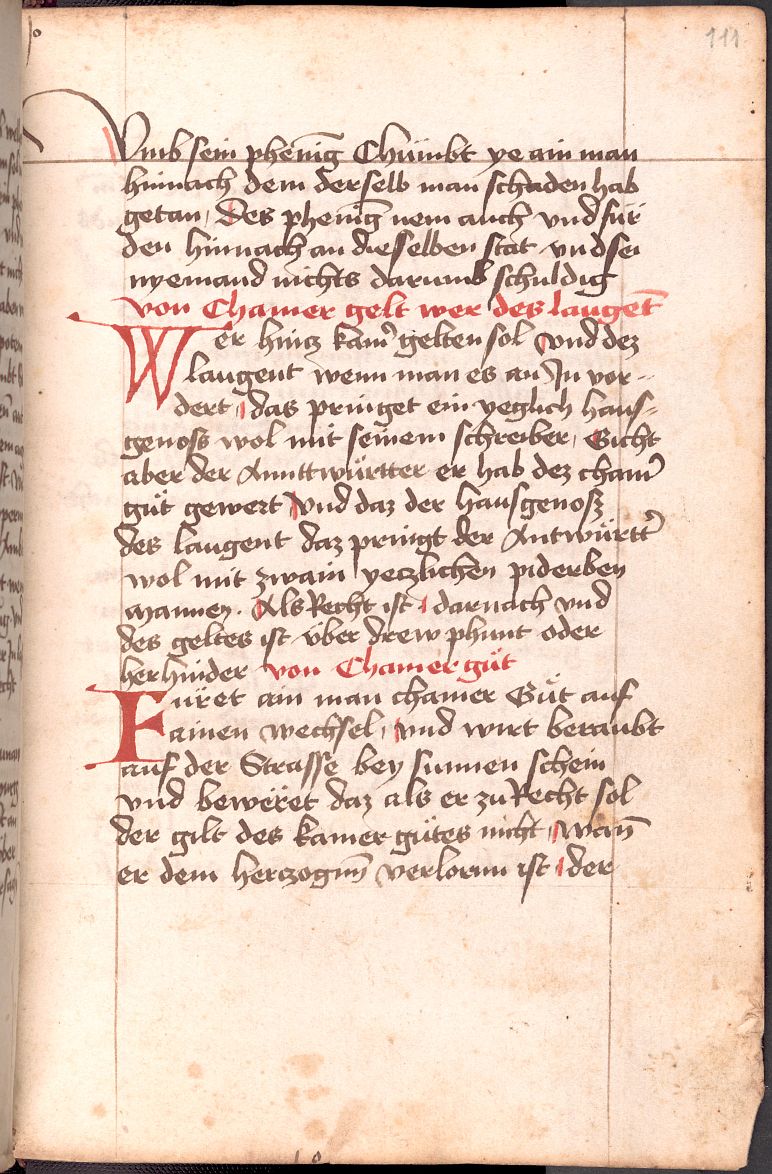 111
Vmb sein phenīg Chumbt ye ain man
hinnach dem derselb man schaden hab
getan / Des phenīg nem auch vnd für
den hinnach an dieselben stat vnd sei
nyemand nichts darumb schuldig
von Chamer gelt wer des laugēt
Wer hincz kam̄ gelten sol / vnd dez
laugent wenn man es an In vor-
dert / das pringet ein yeglich haus-
genoss wol mit seinem schreiber / Gicht
aber der Anttwürtter er hab dez cham̄
gůt gewert / vnd daz der hausgenosz
des laugent daz pringt der Antwürtt̄
wol mit zwain yeczlichen piderben
mannen . Als Recht ist / darnach vnd
des geltes ist über drew phunt oder
herhinder von Chamer gůt
Füret ain man chamer Gůt auf
ainen wechsel / vnd wirt beraubt
auf der Strasse bey sunnen schein
vnd beweret daz als er zu Recht sol
der gilt des kamer gůtes nicht / wañ
er dem herczogn̄ verlornn ist / der